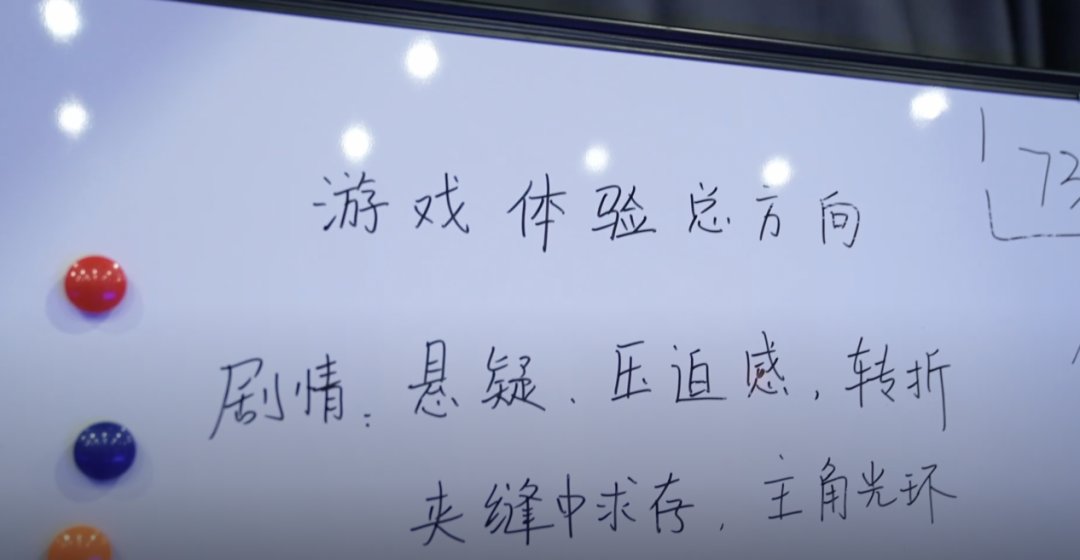 游戏体验总方向
剧情:悬疑、压迫感,转折
夹缝中求存,主角光环